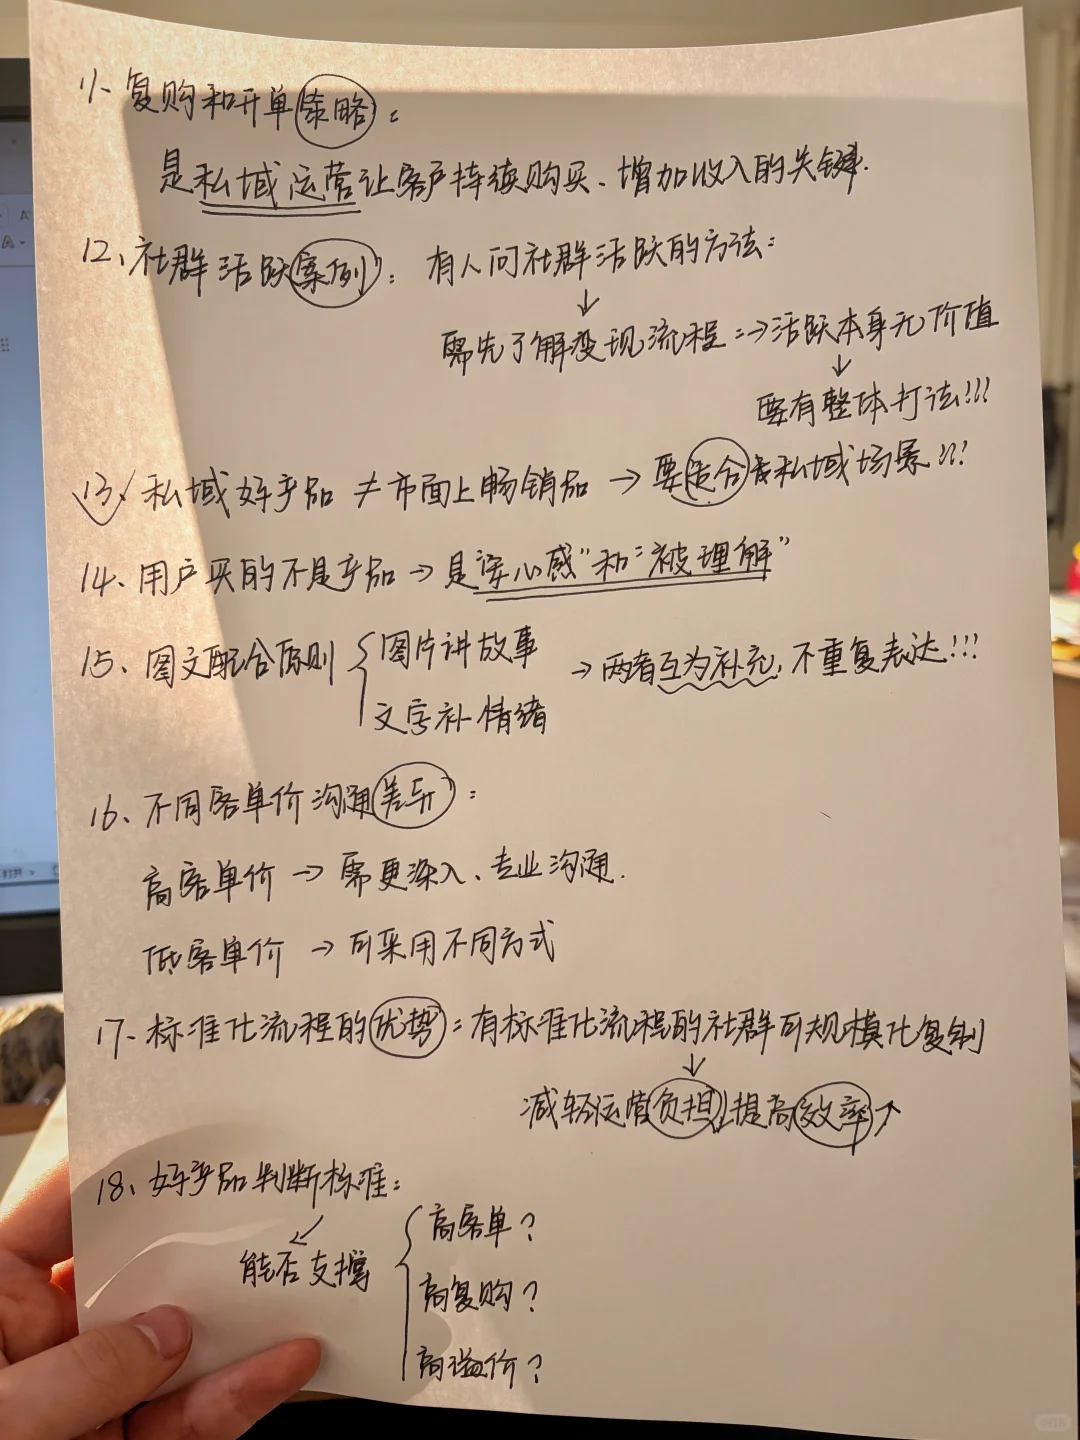 11、复购和开单策略：
是私域运营让客户持续购买、增加收入的关键.
12、社群活跃案例：有人问社群活跃的方法：
↓
需先了解变现流程→活跃本身无价值
↓
要有整体打法!!!
13、私域好产品≠市面上畅销品→要适合私域场景!!!
14、用户买的不是产品→是“安心感”和“被理解”
15、图文配合原则{图片讲故事
文字补情绪
→两者互为补充,不重复表达!!!
16、不同客单价沟通差异：
高客单价→需更深入、专业沟通.
低客单价→可采用不同方式
17、标准化流程的优势：有标准化流程的社群可规模化复制
↓
减轻运营负担↓提高效率↑
18、好产品判断标准：
↙
能否支撑{高客单？
高复购？
高溢价？